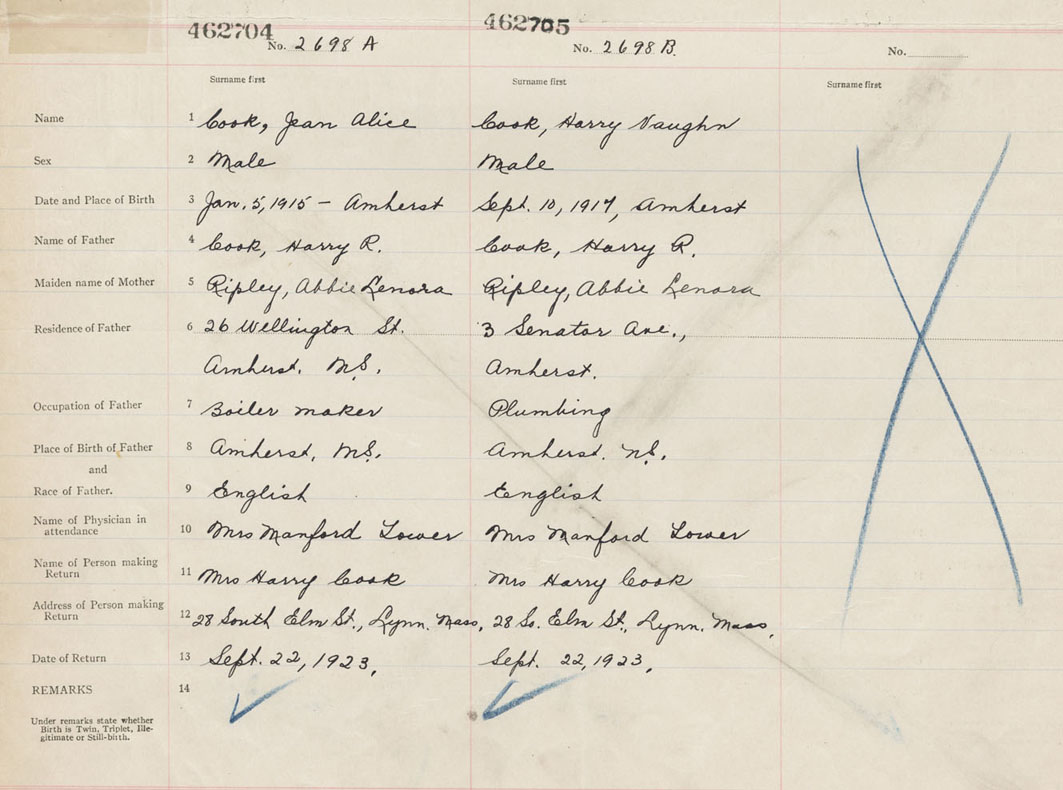 462704 462705
No. 2698 A No. 2698 B. No.
Surname first Surname first Surname first
Name 1 Cook, Jean Alice Cook, Harry Vaughn
Sex 2 Male Male
Date and Place of Birth 3 Jan. 5, 1915 – Amherst Sept. 10, 1917, Amherst
Name of Father 4 Cook, Harry R. Cook, Harry R.
Maiden name of Mother 5 Ripley, Abbie Lenora Ripley, Abbie Lenora
Residence of Father 6 26 Wellington St. 3 Senator Ave.,
Amherst. N.S. Amherst.
Occupation of Father 7 Boiler maker Plumbing
Place of Birth of Father 8 Amherst, N.S. Amherst. N.S.
and
Race of Father. 9 English English
Name of Physician in
attendance 10 Mrs Manford Lower Mrs Manford Lower
Name of Person making
Return 11 Mrs Harry Cook Mrs Harry Cook
Address of Person making
Return 12 28 South Elm St., Lynn. Mass, 28 So. Elm St., Lynn. Mass,
Date of Return 13 Sept. 22, 1923, Sept. 22, 1923,
REMARKS 14
Under remarks state whether
Birth is Twin, Triplet, Ille-
gitimate or Still-birth.